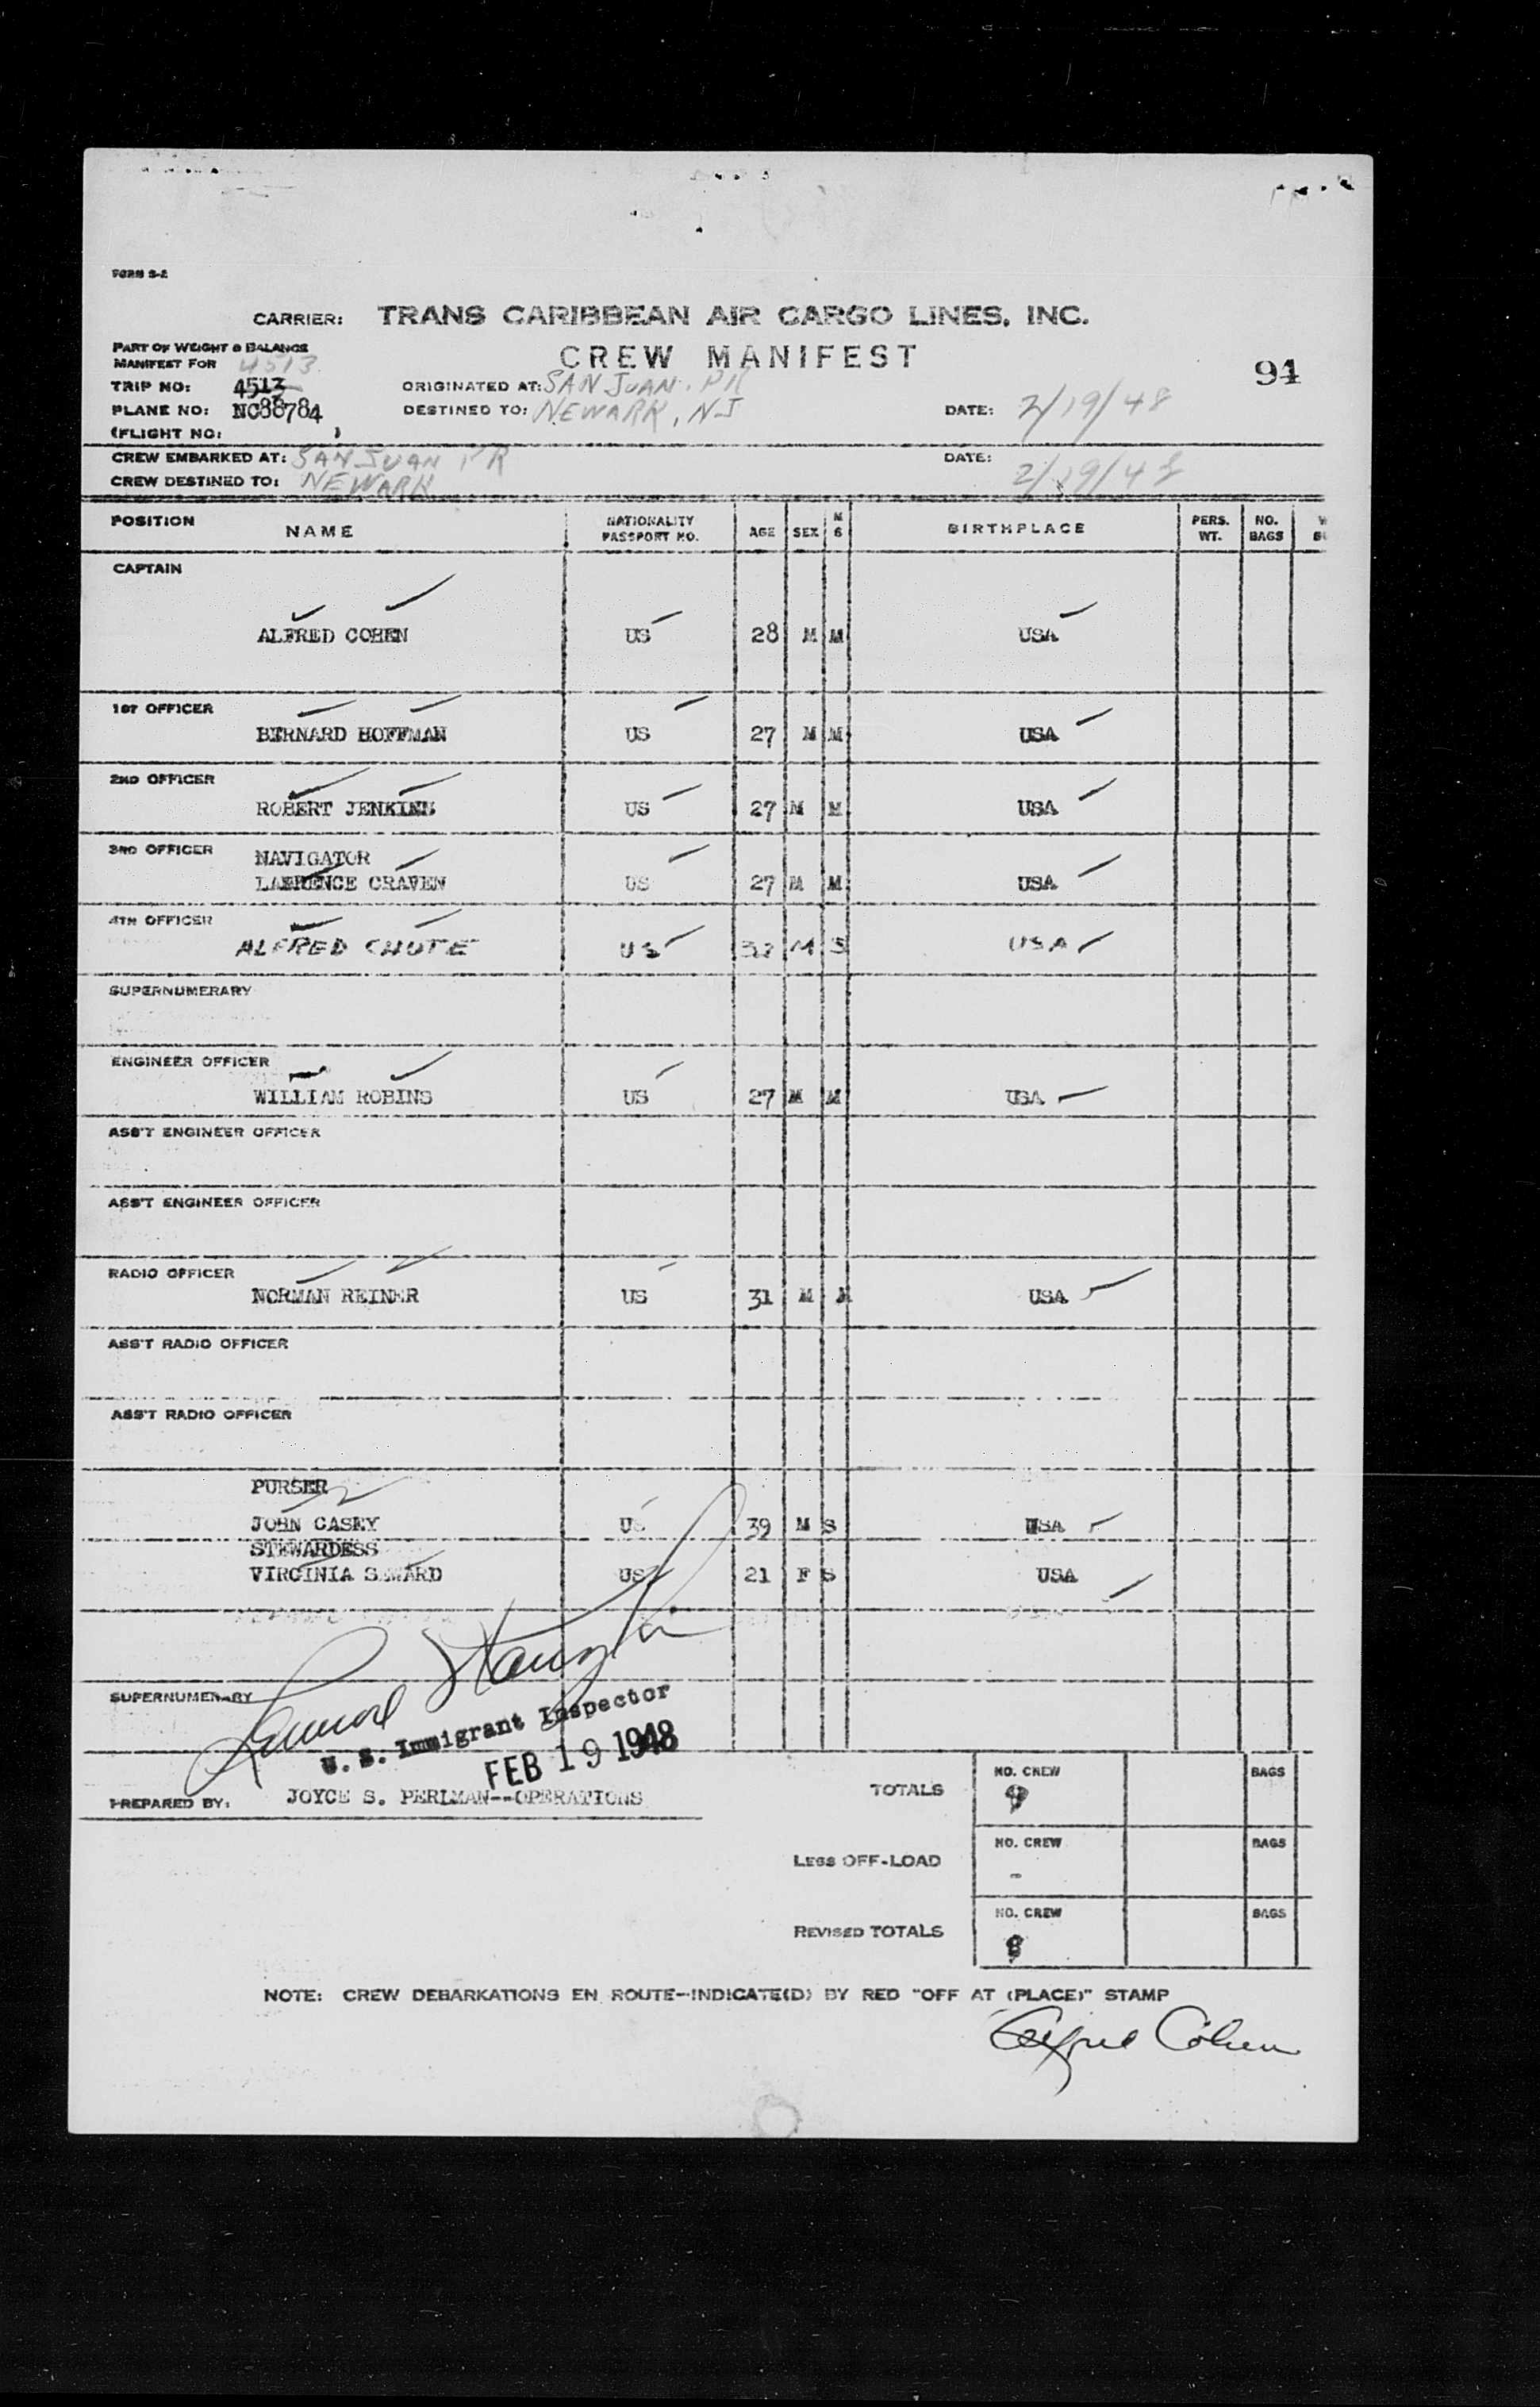 FORM S-2
CARRIER: TRANS CARIBBEAN AIR CARGO LINES, INC.
PART OF WEIGHT & BALANCE
MANIFEST FOR 4513
CREW MANIFEST
94
TRIP NO: 4513
ORIGINATED AT: SAN JUAN, PR
PLANE NO: NC88784
DESTINED TO: NEWARK, NJ
DATE: 2/19/48
(FLIGHT NO: )
CREW EMBARKED AT: SAN JUAN PR
DATE: 2/19/48
CREW DESTINED TO: NEWARK
POSITION NAME NATIONALITY PASSPORT NO. AGE SEX M S BIRTHPLACE PERS. WT. NO. BAGS
CAPTAIN
ALFRED COHEN US 28 M M USA
1ST OFFICER
BERNARD HOFFMAN US 27 M M USA
2ND OFFICER
ROBERT JENKINS US 27 M M USA
3RD OFFICER NAVIGATOR
LAWRENCE CRAVEN US 27 M M USA
4TH OFFICER
ALFRED CHUTE US 32 M S USA
SUPERNUMERARY
ENGINEER OFFICER
WILLIAM ROBINS US 27 M M USA
ASS'T ENGINEER OFFICER
ASS'T ENGINEER OFFICER
RADIO OFFICER
NORMAN REINER US 31 M M USA
ASS'T RADIO OFFICER
ASS'T RADIO OFFICER
PURSER
JOHN CASEY US 39 M S USA
STEWARDESS
VIRGINIA SEWARD US 21 F S USA
SUPERNUMERARY
U. S. Immigrant Inspector
FEB 19 1948
PREPARED BY: JOYCE S. PERLMAN--OPERATIONS
TOTALS NO. CREW 9 BAGS
LESS OFF-LOAD NO. CREW - BAGS
REVISED TOTALS NO. CREW BAGS
NOTE: CREW DEBARKATIONS EN ROUTE--INDICATE(D) BY RED "OFF AT (PLACE)" STAMP
Alfred Cohen